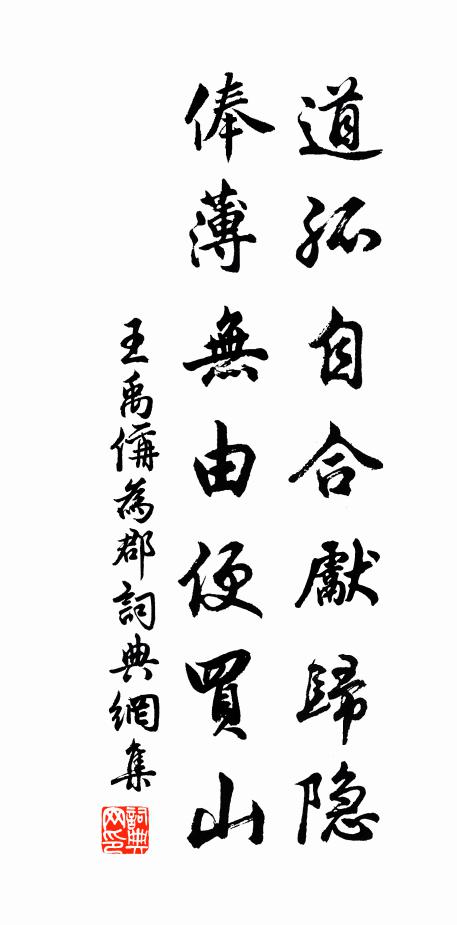 道孤自合獻歸隐
俸薄無由便買山
王禹偁為郡詞典網集
詞典网印